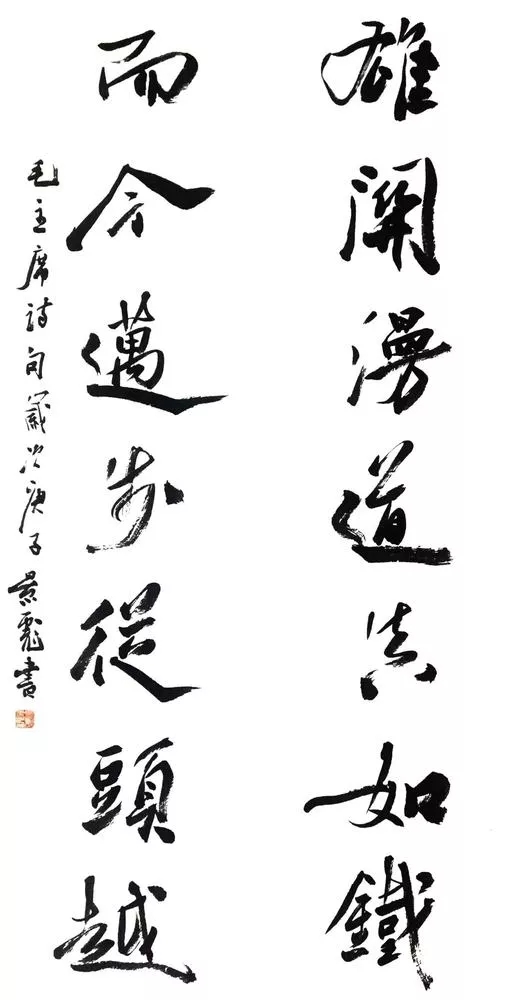 雄關漫道真如鐵
而今邁步從頭越
毛主席詩句歲次庚子景飛書